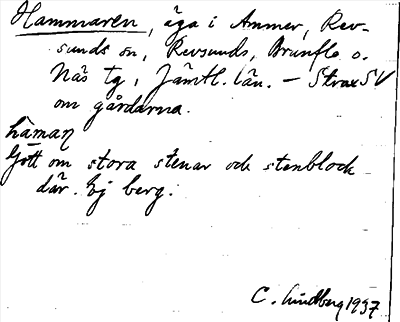 Hammaren, äga i Ammer, Rev-
sunds sn, Revsunds, Brunflo o.
Näs tg, Jämtl. län. – Strax SV
om gårdarna.
håman
Gott om stora stenar och stenblock
där. Ej berg.
C. Lindberg 1937